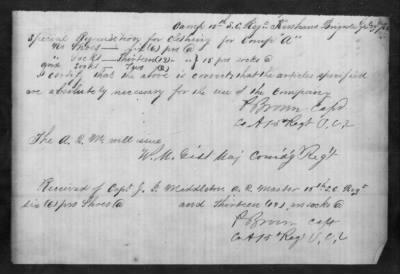 Camp 15th S.C. Regt Kershaws Brigade
Special Requisition for Clothing for Comp "A"
No Shoes — Six (6) prs @
" Socks — Thirteen (13) " } 15 prs socks @
and Socks — Two (2)
I certify that the above is correct & that the articles specified
are absolutely necessary for the use of the Company
P Brown Capt
Co A 15th Regt S.C.V.
The A. Q. M. will issue
W. M. Gist Maj Comdg Regt
Received of Capt J. G. Middleton A. Q. Master 15th S.C. Regt
six (6) prs Shoes @ and Thirteen (13) socks @
P Brown Capt
Co A 15 Regt S.C.V.